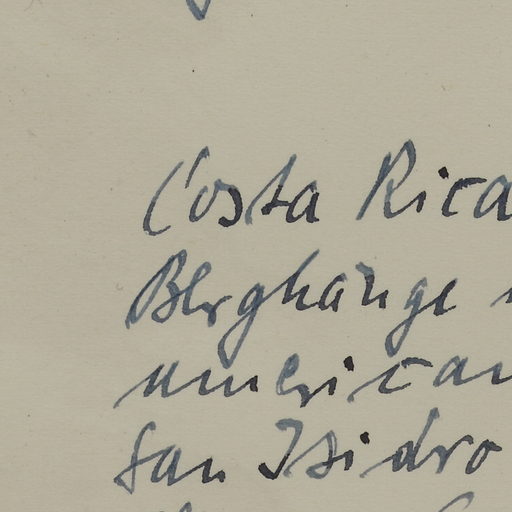 Costa Rica
Berghänge
american
San Isidro